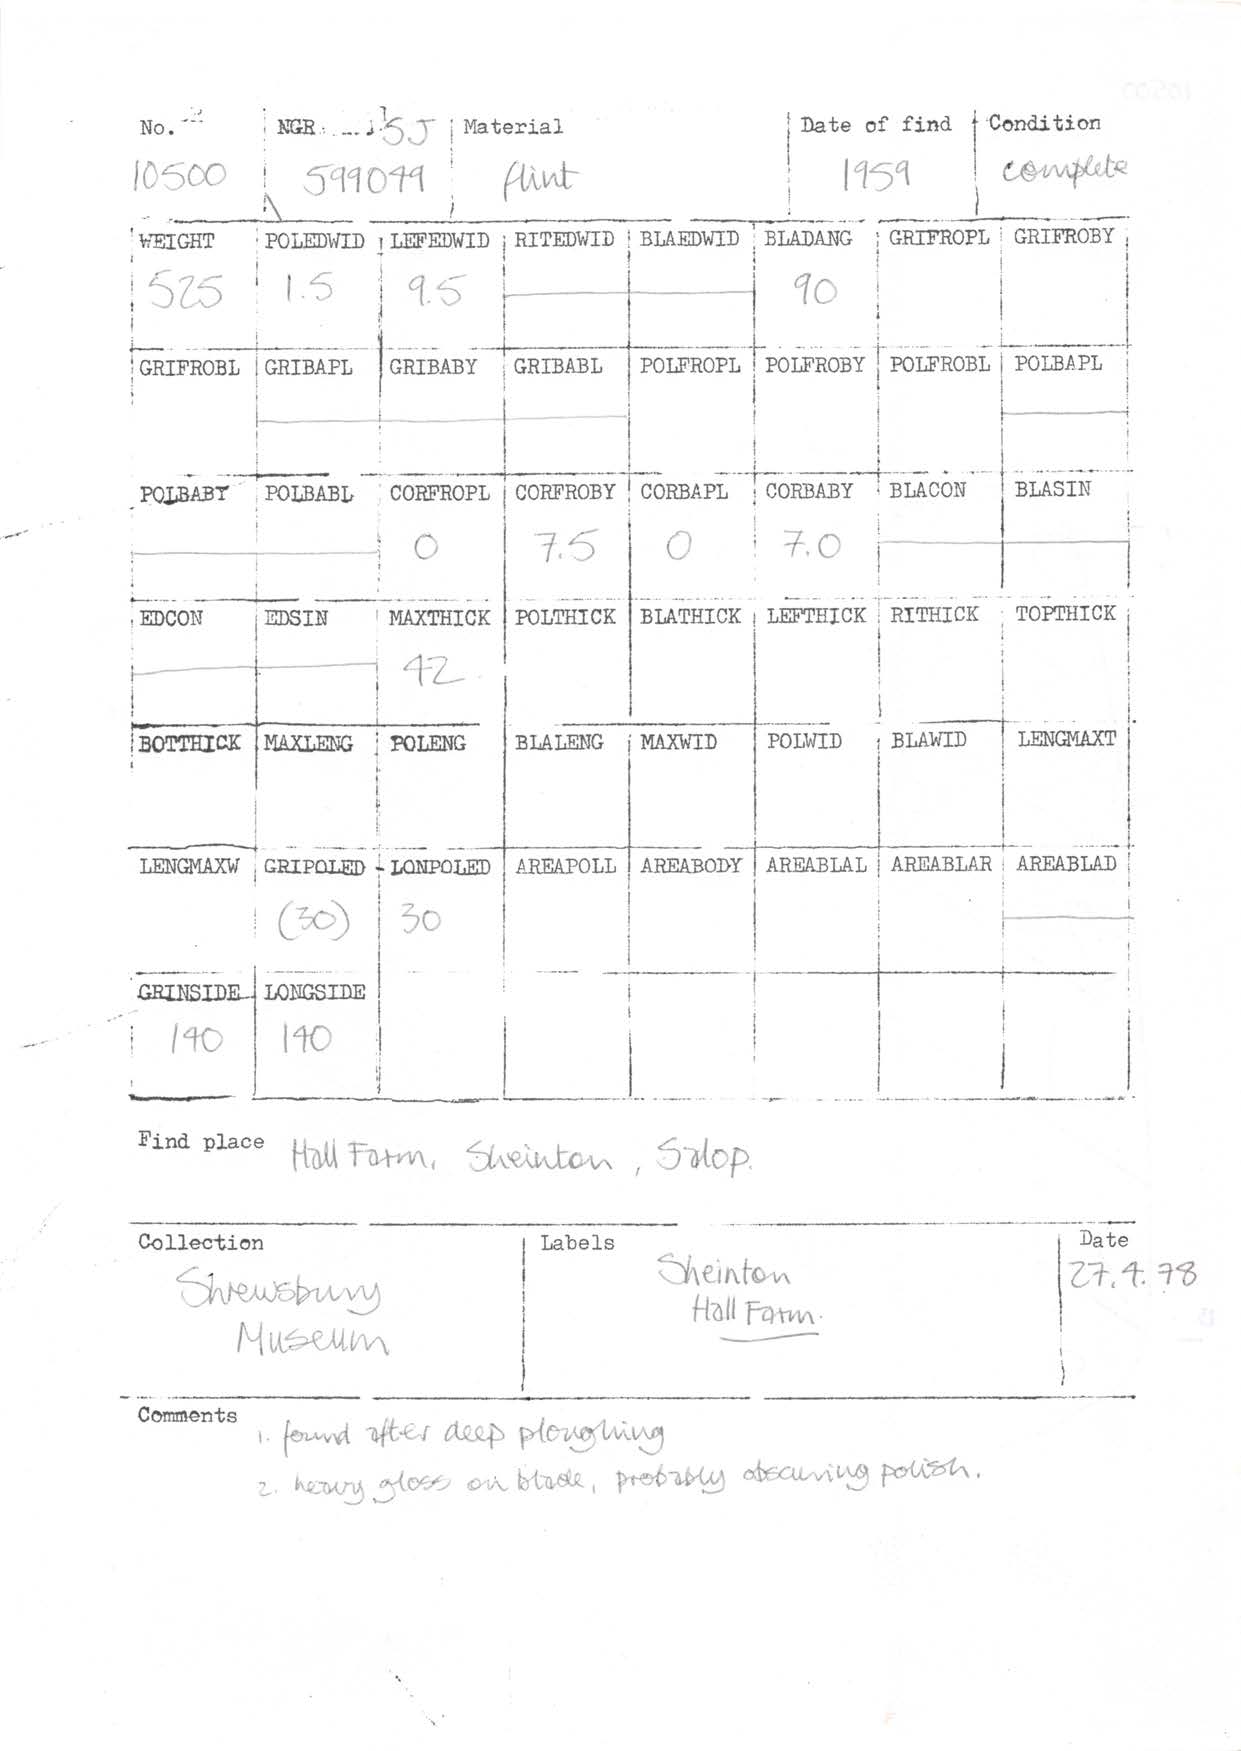 No. NGR: SJ Material Date of find Condition
10500 599049 flint 1959 complete
WEIGHT POLEDWID LEFEDWID RITEDWID BLAEDWID BLADANG GRIFROPL GRIFROBY
525 1.5 9.5 90
GRIFROBL GRIBAPL GRIBABY GRIBABL POLFROPL POLFROBY POLFROBL POLBAPL
POLBABY POLBABL CORFROPL CORFROBY CORBAPL CORBABY BLACON BLASIN
0 7.5 0 7.0
EDCON EDSIN MAXTHICK POLTHICK BLATHICK LEFTHICK RITHICK TOPTHICK
42
BOTTHICK MAXLENG POLENG BLALENG MAXWID POLWID BLAWID LENGMAXT
LENGMAXW GRIPOLED LONPOLED AREAPOLL AREABODY AREABLAL AREABLAR AREABLAD
(30) 30
GRINSIDE LONGSIDE
140 140
Find place Hall Farm, Sheinton, Salop.
Collection Labels Date
Shrewsbury Sheinton 27.4.78
Museum Hall Farm.
Comments 1. found after deep ploughing
2. heavy gloss on blade, probably obscuring polish.